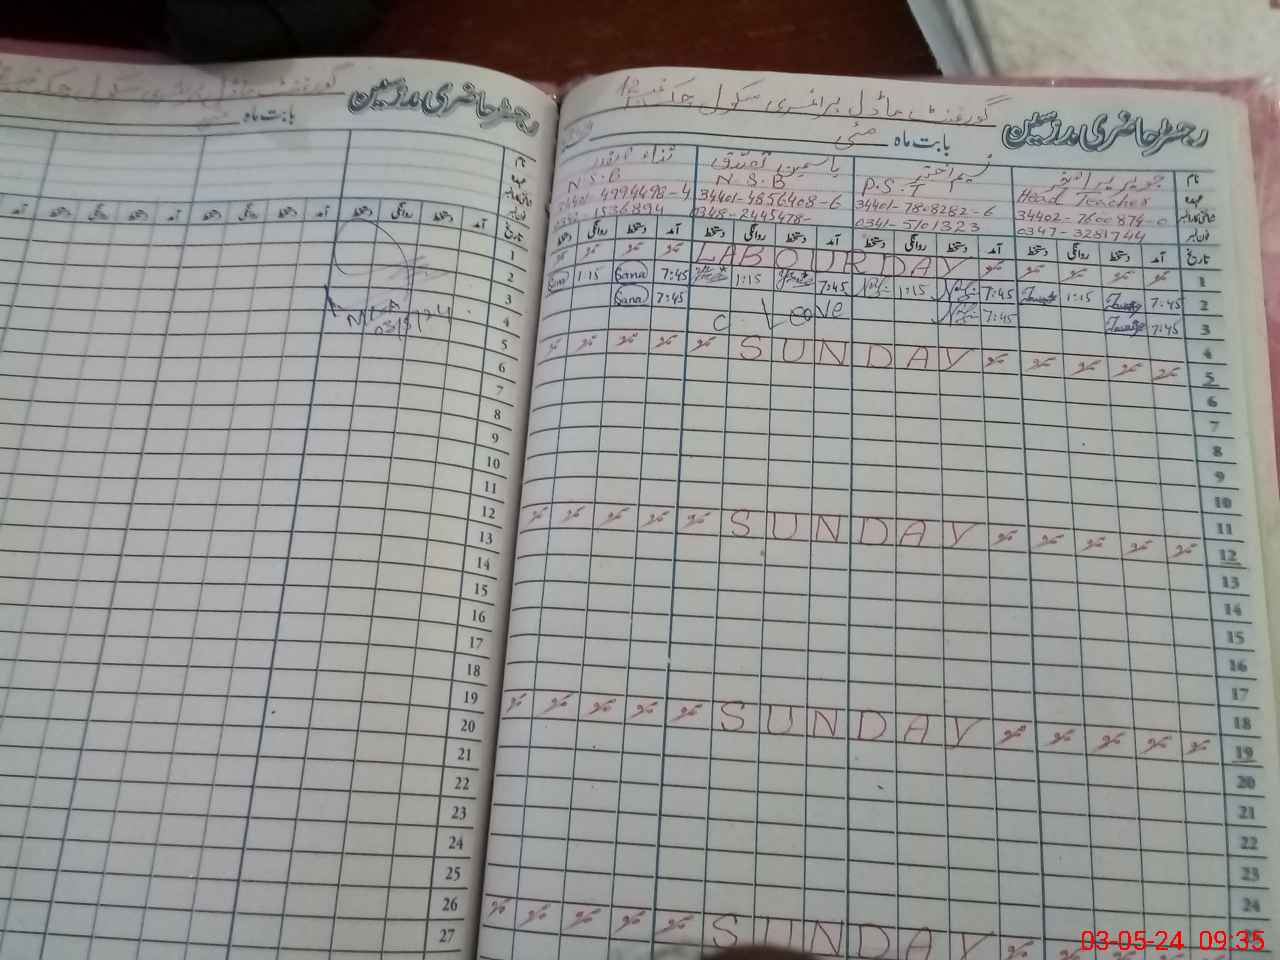 رجسٹر حاضری مدرسین
گورنمنٹ ماڈل پرائمری سکول چک نمبر 12
بابت ماہ مئی
نام
نسیم اختر
یاسمین
ثناء
Head Teacher
P.S.T
N.S.B
N.S.B
34402-7600874-0
34401-7808282-6
34401-4856408-6
34401-4994498-4
0347-3281744
0341-5701323
0348-2445478-
0332-1536894
تاریخ آمد دستخط روانگی دستخط آمد دستخط روانگی دستخط آمد دستخط روانگی دستخط آمد دستخط روانگی دستخط
1 LABOUR DAY
2 7:45 1:15 7:45 1:15 7:45 1:15 7:45 Sana 1:15 Sana
3 7:45 7:45 C Leave 7:45 Sana
4
5 SUNDAY
6
7
8
9
10
11
12 SUNDAY
13
14
15
16
17
18
19 SUNDAY
20
21
22
23
24
25
SUNDAY
رجسٹر حاضری مدرسین
گورنمنٹ ماڈل پرائمری سکول چک
بابت ماہ
نام
تاریخ آمد دستخط روانگی دستخط آمد دستخط روانگی دستخط آمد دستخط روانگی دستخط آمد
1
2
3
4
5
6
7
8
9
10
11
12
13
14
15
16
17
18
19
20
21
22
23
24
25
26
27
03-05-24 09:35